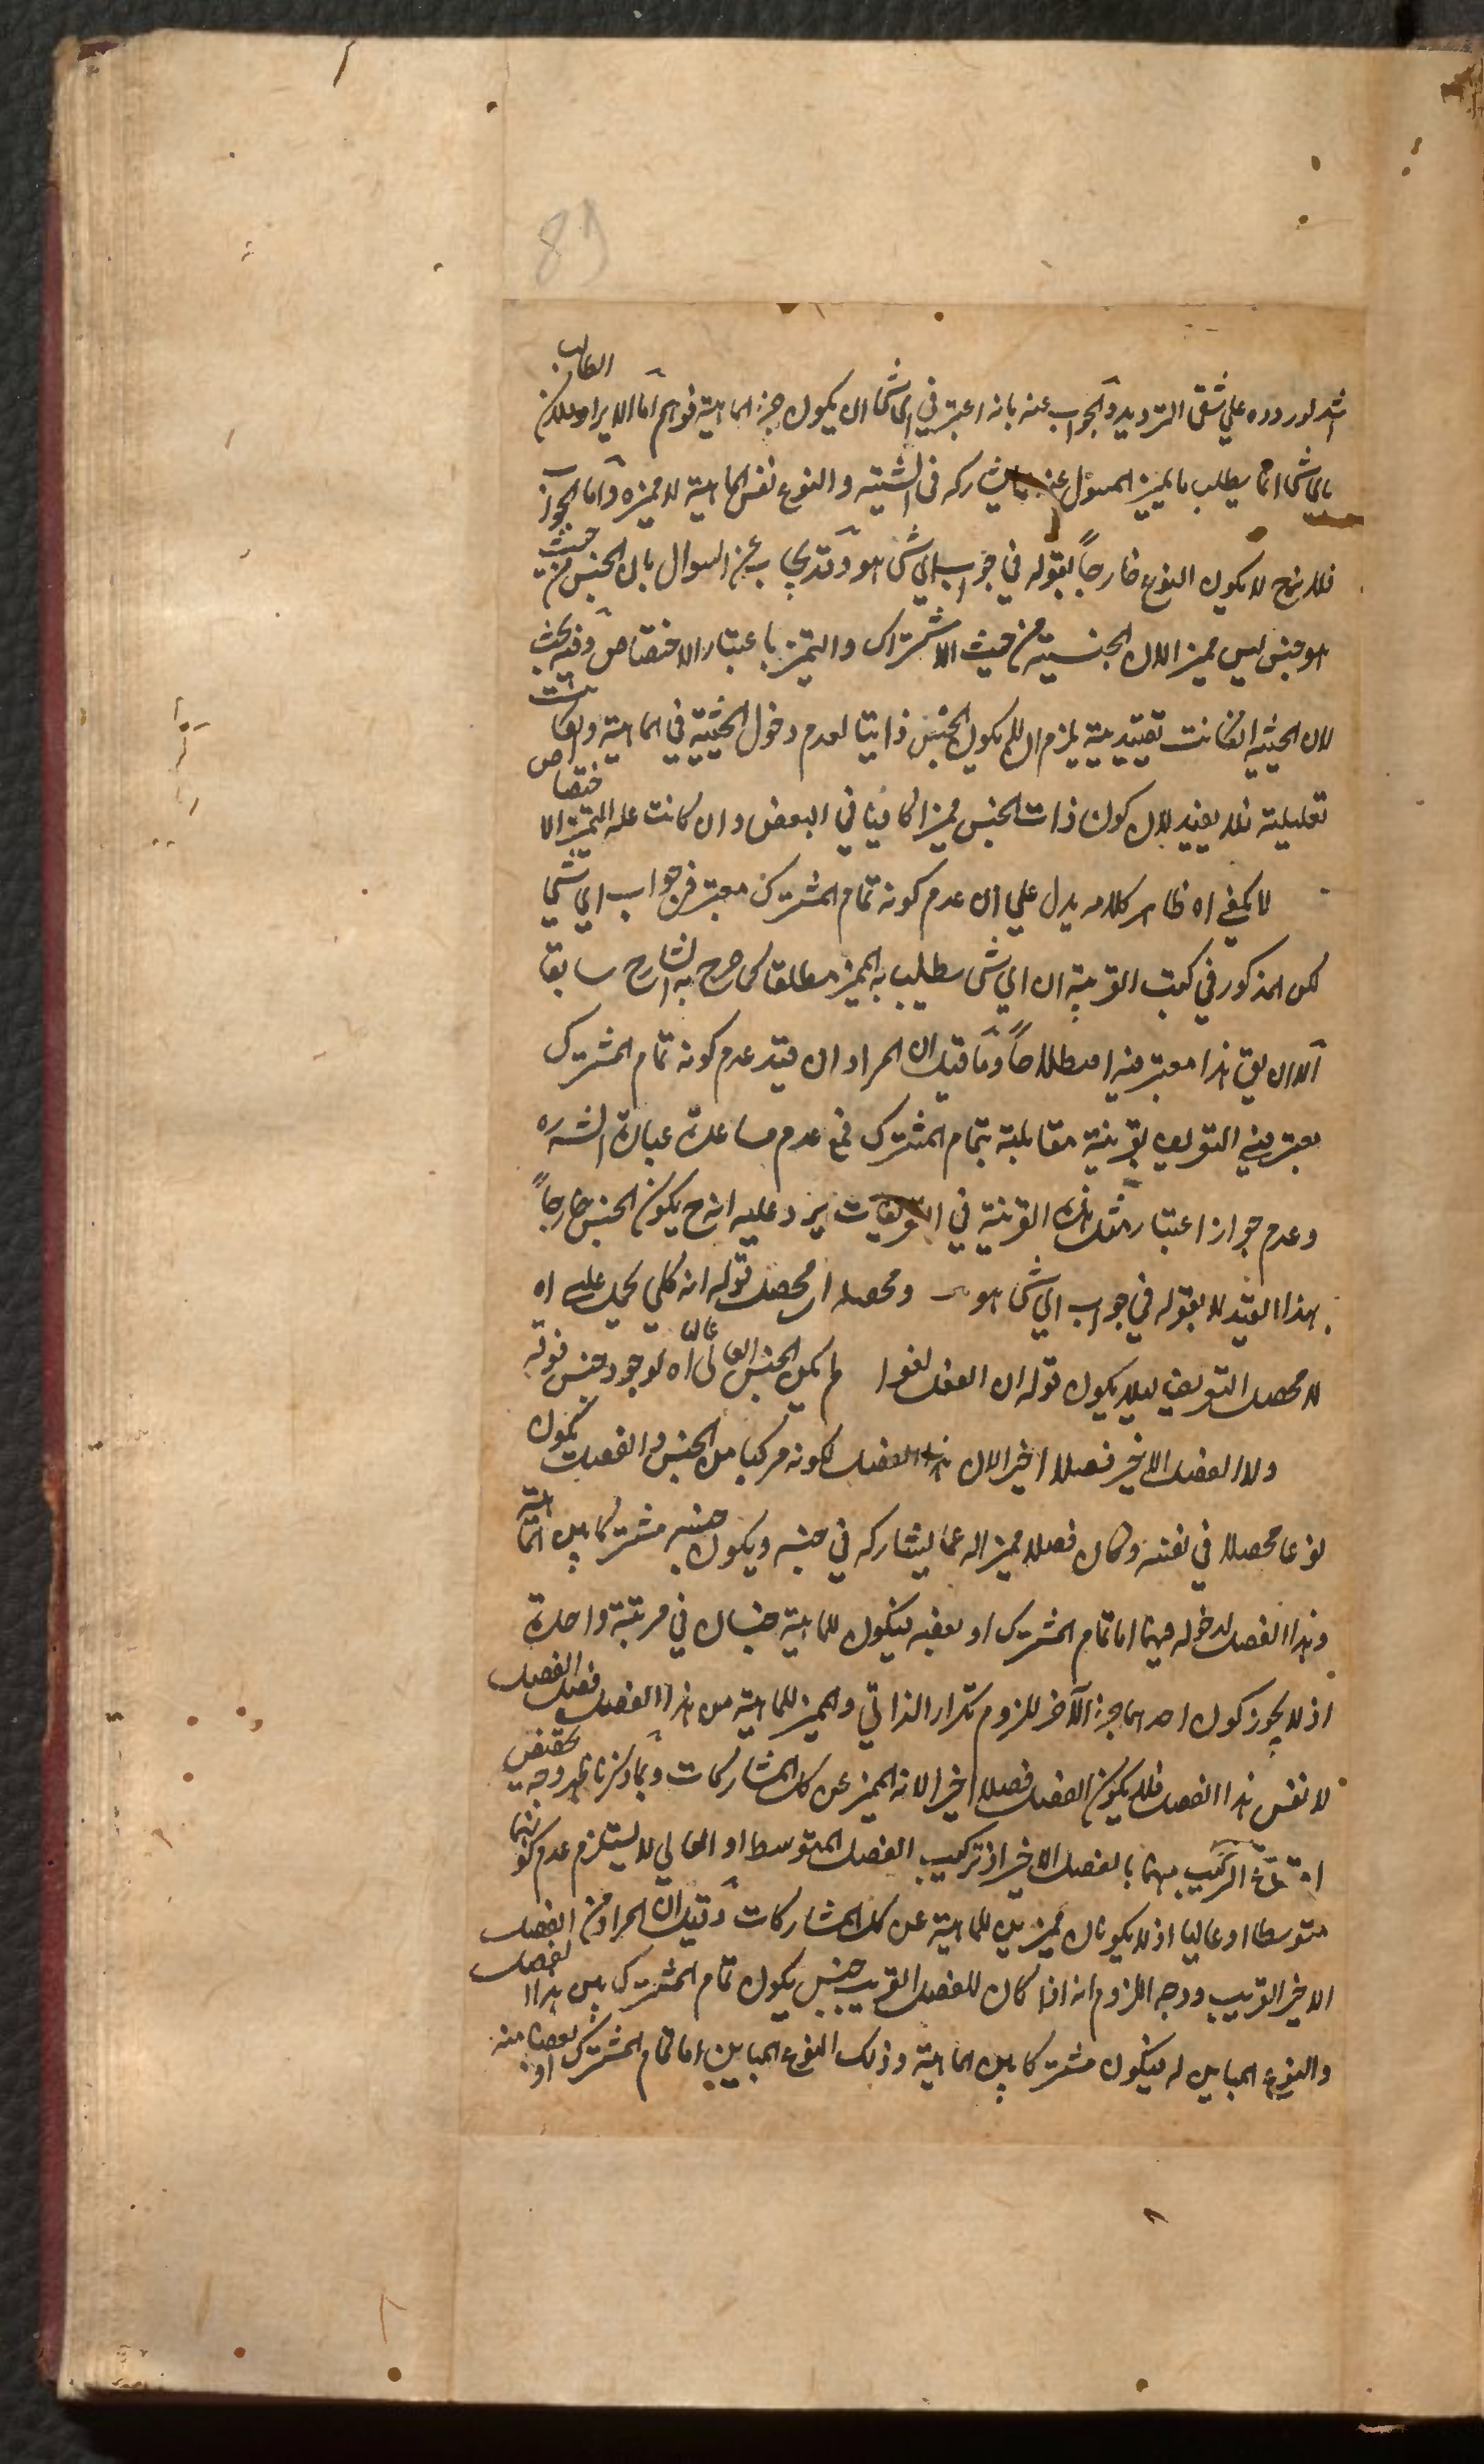 89
اشد لوروده على شقى الترديد والجواب عنه بانه اعتبر في اي شئ ان يكون جزء الماهية فوهم اما الايراد فلان الطالب
باي شئ انما يطلب ما يميز المسؤل عنه عما يشاركه في الشيئية والنوع نفس الماهية لا مميزه واما الجواب
فلانه ح لا يكون النوع خارجاً بقوله في جواب اي شئ هو وقد يجاب عن السوال بان الجنس من حيث
هو جنس ليس مميزا لان الجنسية من حيث الاشتراك والتميز باعتبار الاختصاص وفيه بحث
لان الحيثية ان كانت تقييدية يلزم ان لا يكون الجنس ذاتيا لعدم دخول الحيثية في الماهية وان كانت
تعليلية فلا يفيد لان كون ذات الجنس مميزا كافينا في البعض وان كانت علة التميز الاختصاص
لا يكفي اه ظاهر كلامه يدل على ان عدم كونه تمام المشترك معتبر في جواب اي شئ
لكن المذكور في كتب القوم ان اي شئ يطلب به المميز مطلقا كما صرح به الشارح سابقا
الا ان يق هذا معتبر فيه اصطلاحاً وما قيل ان المراد ان قيد عدم كونه تمام المشترك
معتبر في التعريف بقرينة مقابلته بتمام المشترك فمع عدم مساعدة عبارة الشرح
وعدم جواز اعتبار مثل هذه القرينة في التعريفات يرد عليه انه ح يكون الجنس خارجاً
بهذا القيد لا بقوله في جواب اي شئ هو ومحصله اى محصل قوله انه كلي يحمل عليه اه
لا محصل التعريف ليلا يكون قوله ان الفصل لغوا لم يكن الجنس العالى عاليا اه لوجود جنس فوقه
ولا الفصل الاخير فصلا اخيرا لان هذا الفصل لكونه مركبا من الجنس والفصل يكون
نوعا محصلا في نفسه وكان فصله مميزا له عما يشاركه في جنسه ويكون جنسه مشتركا بين الماهية
وهذا الفصل لدخوله فيهما اما تمام المشترك او بعضه فيكون للماهية جنسان في مرتبة واحدة
اذ لا يجوز كون احدهما جزء الآخر للزوم تكرار الذاتي والمميز للماهية من هذا الفصل فصل الفصل
لا نفس هذا الفصل فلا يكون الفصل فصلا اخيرا لانه المميز عن كل المشاركات وبما ذكرنا ظهر وجه تخصيص
امتناع التركيب بهما بالفصل الاخير اذ تركيب الفصل المتوسط او العالي لا يستلزم عدم كونهما
متوسطا او عاليا اذ لا يكونان مميزين للماهية عن كل المشاركات وقيل ان المراد من الفصل
الاخير القريب ووجه اللزوم انه اذا كان للفصل القريب جنس يكون تمام المشترك بين هذا الفصل
والنوع المباين له فيكون مشتركا بين الماهية وذلك النوع المباين اما تمام المشترك او بعضا منه